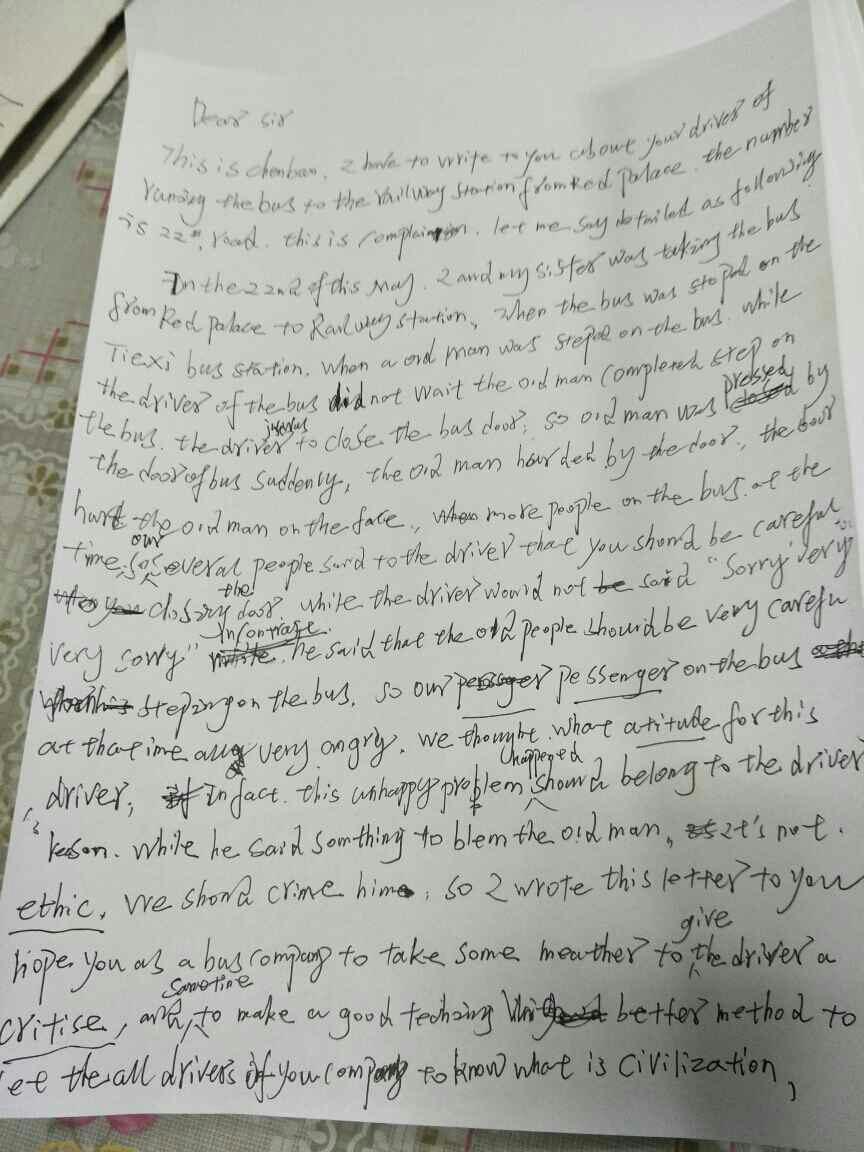 Dear sir
This is chenban. I have to write to you aboue your driver of
runing the bus to the railway station from Red palace. the number
is 22#, road. this is complain. let me say detailed as following
In the 22nd of this May. I and my sister was taking the bus
from Red palace to Railway station, when the bus was stoped on the
Tiexi bus station. when a old man was steped on the bus. while
the driver of the bus did not wait the old man completed step on
the bus. the driver to close the bus door, so old man was pressed by
the door of bus suddenly, the old man hurded by the door, the door
hurt the old man on the face, more people on the bus. at the
time, so our several people said to the driver that you should be careful
closing the door, while the driver would not said "Sorry very
very sorry" In contrare. he said that the old people should be very carefu
steping on the bus, so our pessenger on the bus
at that time all very angry. we thought what atitude for this
driver, In fact. this unhappy problem happened should belong to the driver
's keson. while he said somthing to blem the old man, it's not.
ethic, We shoud crime him, so I wrote this letter to you
hope you as a bus company to take some meather to give the driver a
critise, and sametime, to make a good teching better method to
let the all drivers of you company to know what is civilization,